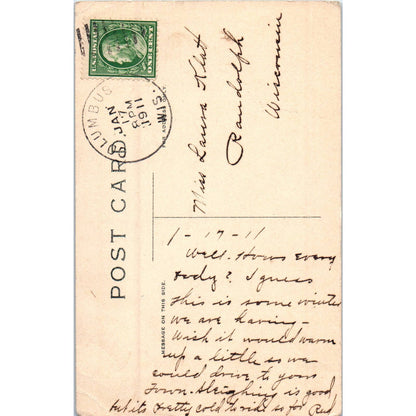 U.S. POSTAGE
ONE CENT
COLUMBUS
JAN
17
8 PM
1911
WIS.
POST CARD
FOR ADDRESS ONLY.
MESSAGE ON THIS SIDE.
Miss Laura Klat
Randolph
Wisconsin
1-17-11
Well. Hows Every
body? I guess
this is some winter
we are having-
Wish it would warm
up a little so we
could drive to your
Town. Sleighing is good
but its Pretty cold to ride so far